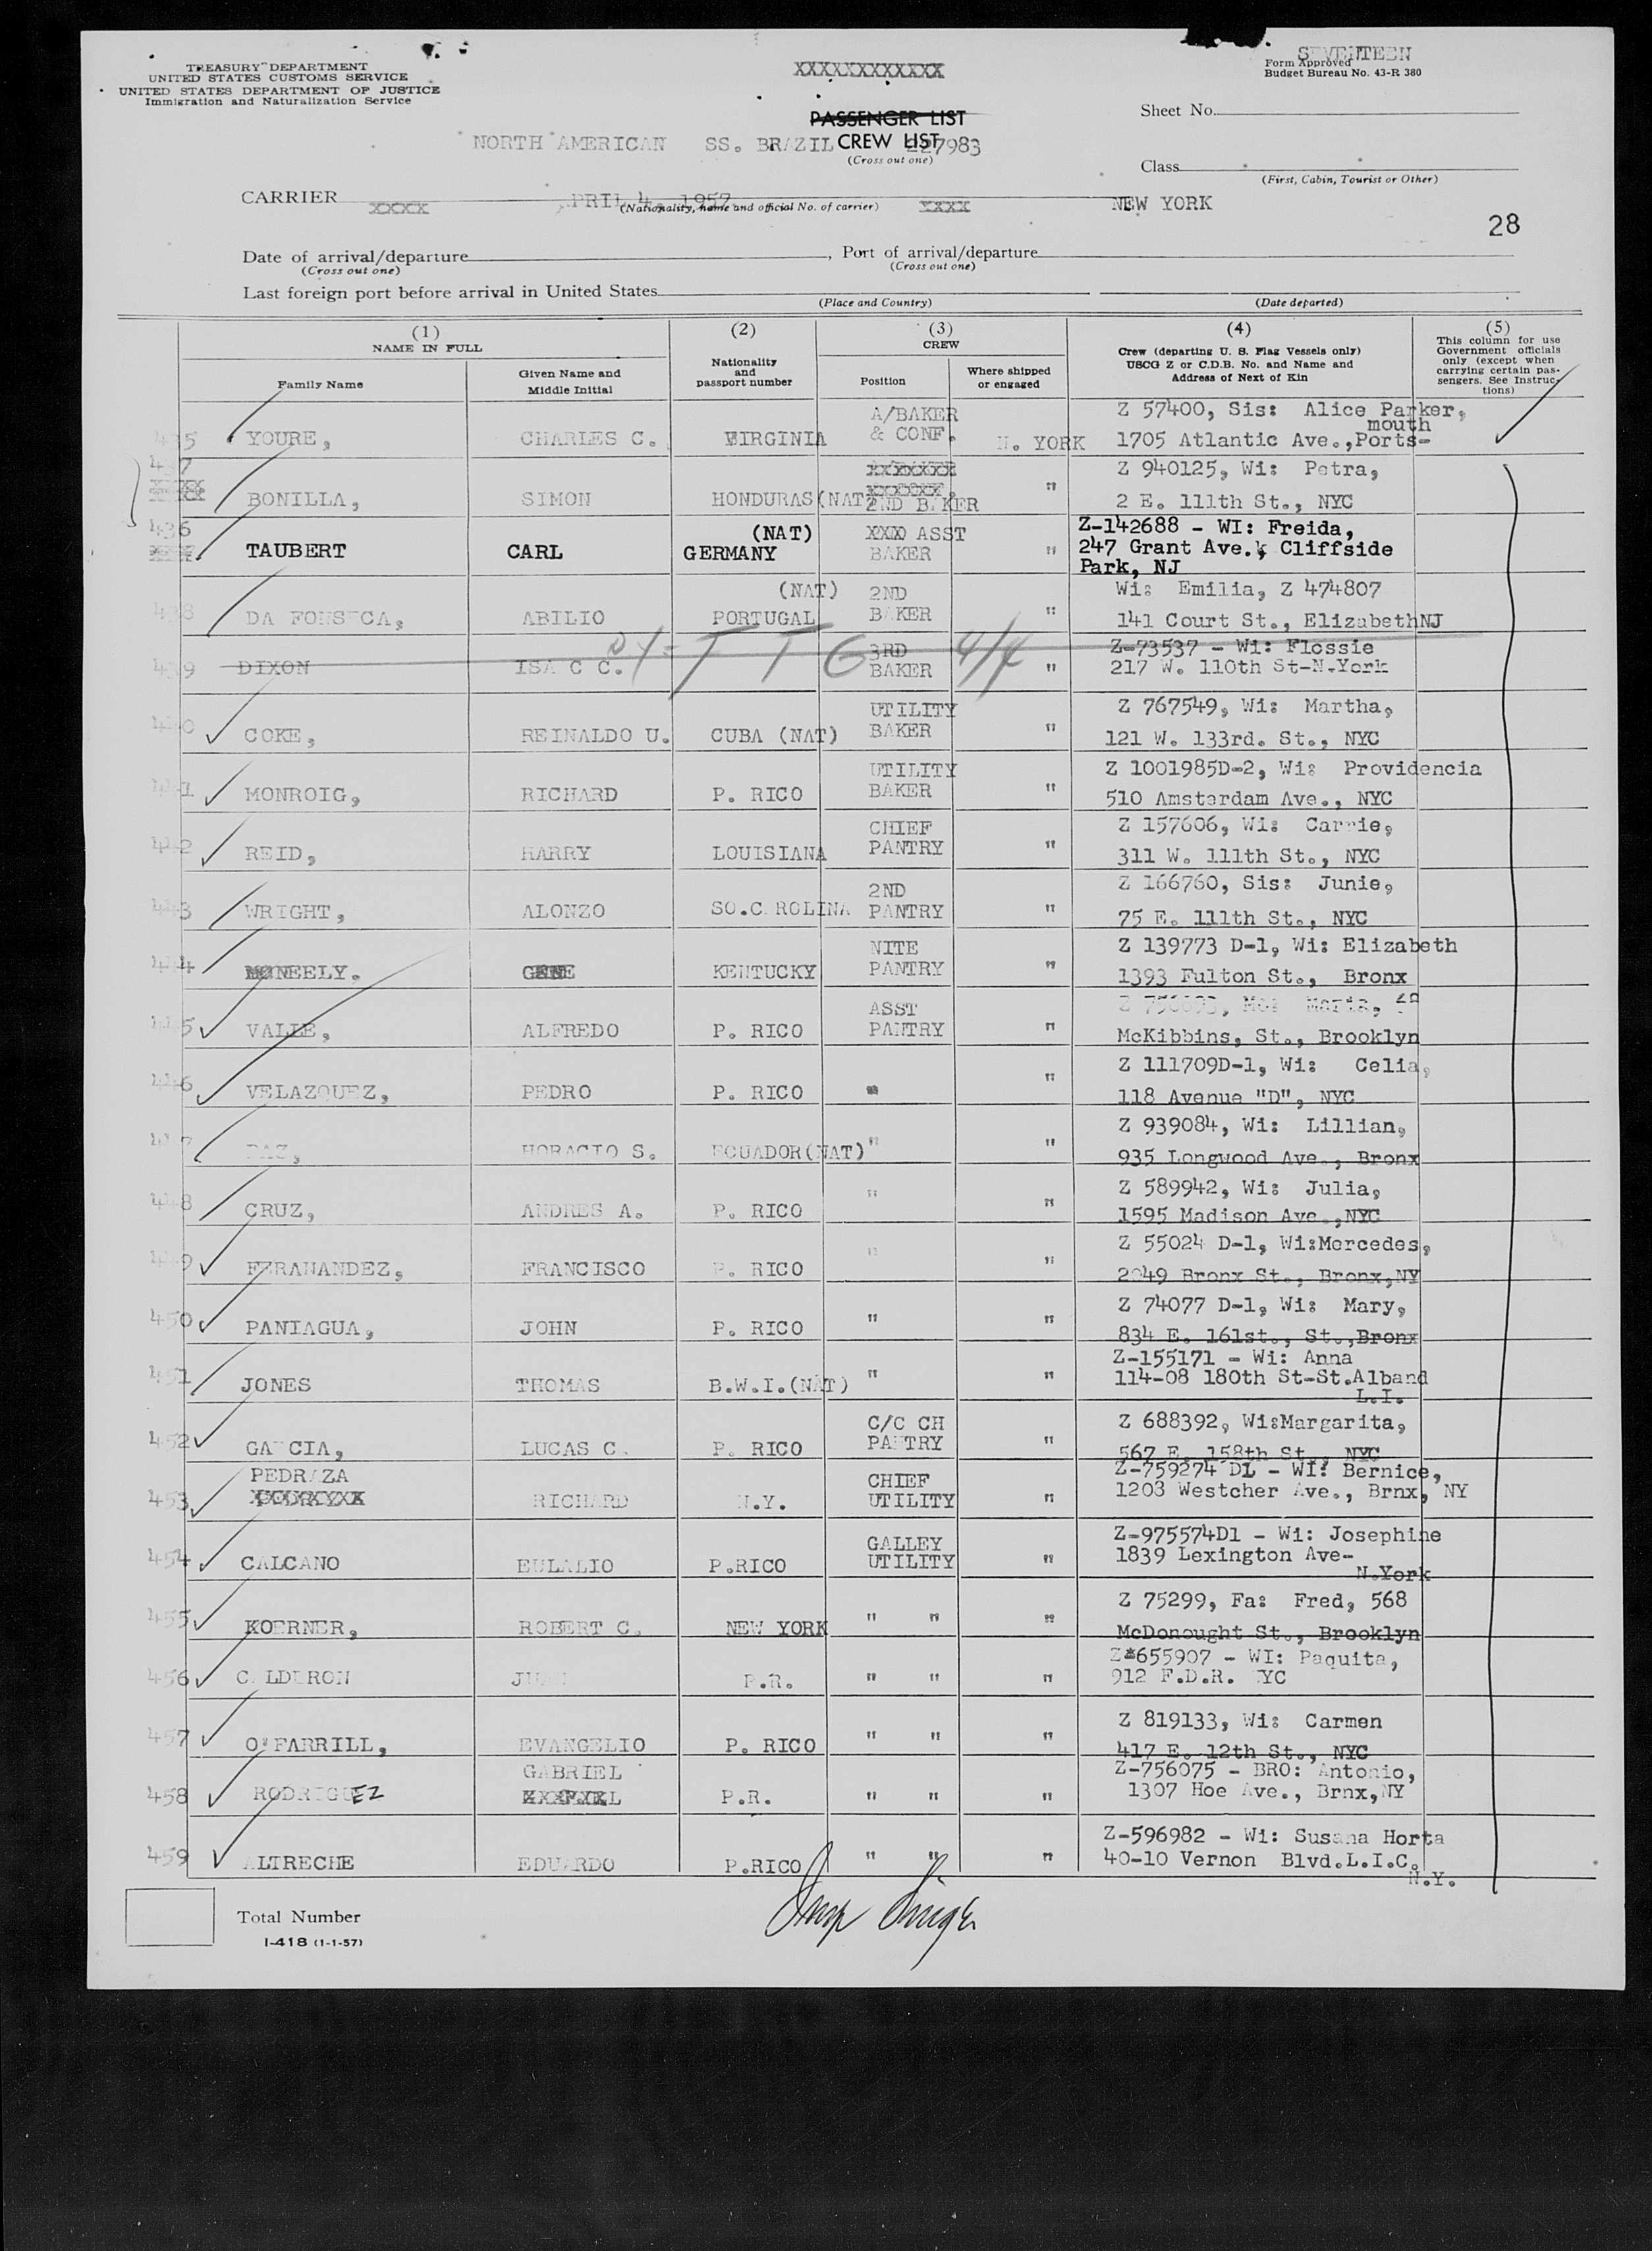 TREASURY DEPARTMENT
UNITED STATES CUSTOMS SERVICE
UNITED STATES DEPARTMENT OF JUSTICE
Immigration and Naturalization Service
XXXXXXXXXXXX
SEVENTEEN
Form Approved
Budget Bureau No. 43-R 380
PASSENGER LIST
Sheet No.
NORTH AMERICAN SS. BRAZIL CREW LIST 227983
(Cross out one)
Class
(First, Cabin, Tourist or Other)
CARRIER APRIL 4, 1957 NEW YORK
XXXX (Nationality, name and official No. of carrier) XXXX
28
Date of arrival/departure, Port of arrival/departure
(Cross out one) (Cross out one)
Last foreign port before arrival in United States
(Place and Country) (Date departed)
(1) (2) (3) (4) (5)
NAME IN FULL
Family Name
Given Name and Middle Initial
Nationality and passport number
CREW
Position
Where shipped or engaged
Crew (departing U. S. Flag Vessels only)
USCG Z or C.D.B. No. and Name and
Address of Next of Kin
This column for use
Government officials
only (except when
carrying certain pas-
sengers. See Instruc-
tions)
A/BAKER Z 57400, Sis: Alice Parker,
435 YOURE, CHARLES C. VIRGINIA & CONF. N. YORK 1705 Atlantic Ave., Ports-mouth
437 XXXXXXX Z 940125, Wi: Petra,
BONILLA, SIMON HONDURAS(NAT) 2ND BAKER " 2 E. 111th St., NYC
436 (NAT) XXX ASST Z-142688 - WI: Freida,
TAUBERT CARL GERMANY BAKER " 247 Grant Ave., Cliffside
Park, NJ
(NAT) 2ND Wi: Emilia, Z 474807
438 DA FONSECA, ABILIO PORTUGAL BAKER " 141 Court St., ElizabethNJ
3RD Z-73537 - Wi: Flossie
439 DIXON ISAAC C. BAKER 4/4 " 217 W. 110th St-N.York
UTILITY Z 767549, Wi: Martha,
440 COKE, REINALDO U. CUBA (NAT) BAKER " 121 W. 133rd. St., NYC
UTILITY Z 1001985D-2, Wi: Providencia
441 MONROIG, RICHARD P. RICO BAKER " 510 Amsterdam Ave., NYC
CHIEF Z 157606, Wi: Carrie,
442 REID, HARRY LOUISIANA PANTRY " 311 W. 111th St., NYC
2ND Z 166760, Sis: Junie,
443 WRIGHT, ALONZO SO.CAROLINA PANTRY " 75 E. 111th St., NYC
NITE Z 139773 D-1, Wi: Elizabeth
444 MCNEELY. GENE KENTUCKY PANTRY " 1393 Fulton St., Bronx
ASST Maria,
445 VALLE, ALFREDO P. RICO PANTRY " McKibbins, St., Brooklyn
Z 111709D-1, Wi: Celia,
446 VELAZQUEZ, PEDRO P. RICO " " 118 Avenue "D", NYC
Z 939084, Wi: Lillian,
447 PAZ, HORACIO S. ECUADOR(NAT) " " 935 Longwood Ave., Bronx
Z 589942, Wi: Julia,
448 CRUZ, ANDRES A. P. RICO " " 1595 Madison Ave.,NYC
Z 55024 D-1, Wi:Mercedes,
449 FERANANDEZ, FRANCISCO P. RICO " " 2049 Bronx St., Bronx,NY
Z 74077 D-1, Wi: Mary,
450 PANIAGUA, JOHN P. RICO " " 834 E. 161st., St.,Bronx
Z-155171 - Wi: Anna
451 JONES THOMAS B.W.I.(NAT) " " 114-08 180th St-St.Alband
L.I.
C/C CH Z 688392, Wi:Margarita,
452 GARCIA, LUCAS C. P. RICO PANTRY " 567 E. 158th St., NYC
PEDRAZA CHIEF Z-759274 D1 - WI: Bernice,
453 RICHARD N.Y. UTILITY " 1203 Westcher Ave., Brnx, NY
GALLEY Z-975574D1 - Wi: Josephine
454 CALCANO EULALIO P.RICO UTILITY " 1839 Lexington Ave-
N.York
Z 75299, Fa: Fred, 568
455 KOERNER, ROBERT C. NEW YORK " " " McDonought St., Brooklyn
Z*655907 - WI: Paquita,
456 CALDERON P.R. " " " 912 F.D.R. NYC
Z 819133, Wi: Carmen
457 O'FARRILL, EVANGELIO P. RICO " " " 417 E. 12th St., NYC
GABRIEL Z-756075 - BRO: Antonio,
458 RODRIGUEZ P.R. " " " 1307 Hoe Ave., Brnx,NY
Z-596982 - Wi: Susana Horta
459 ALTRECHE EDUARDO P.RICO " " " 40-10 Vernon Blvd.L.I.C.
N.Y.
Total Number
I-418 (1-1-57)